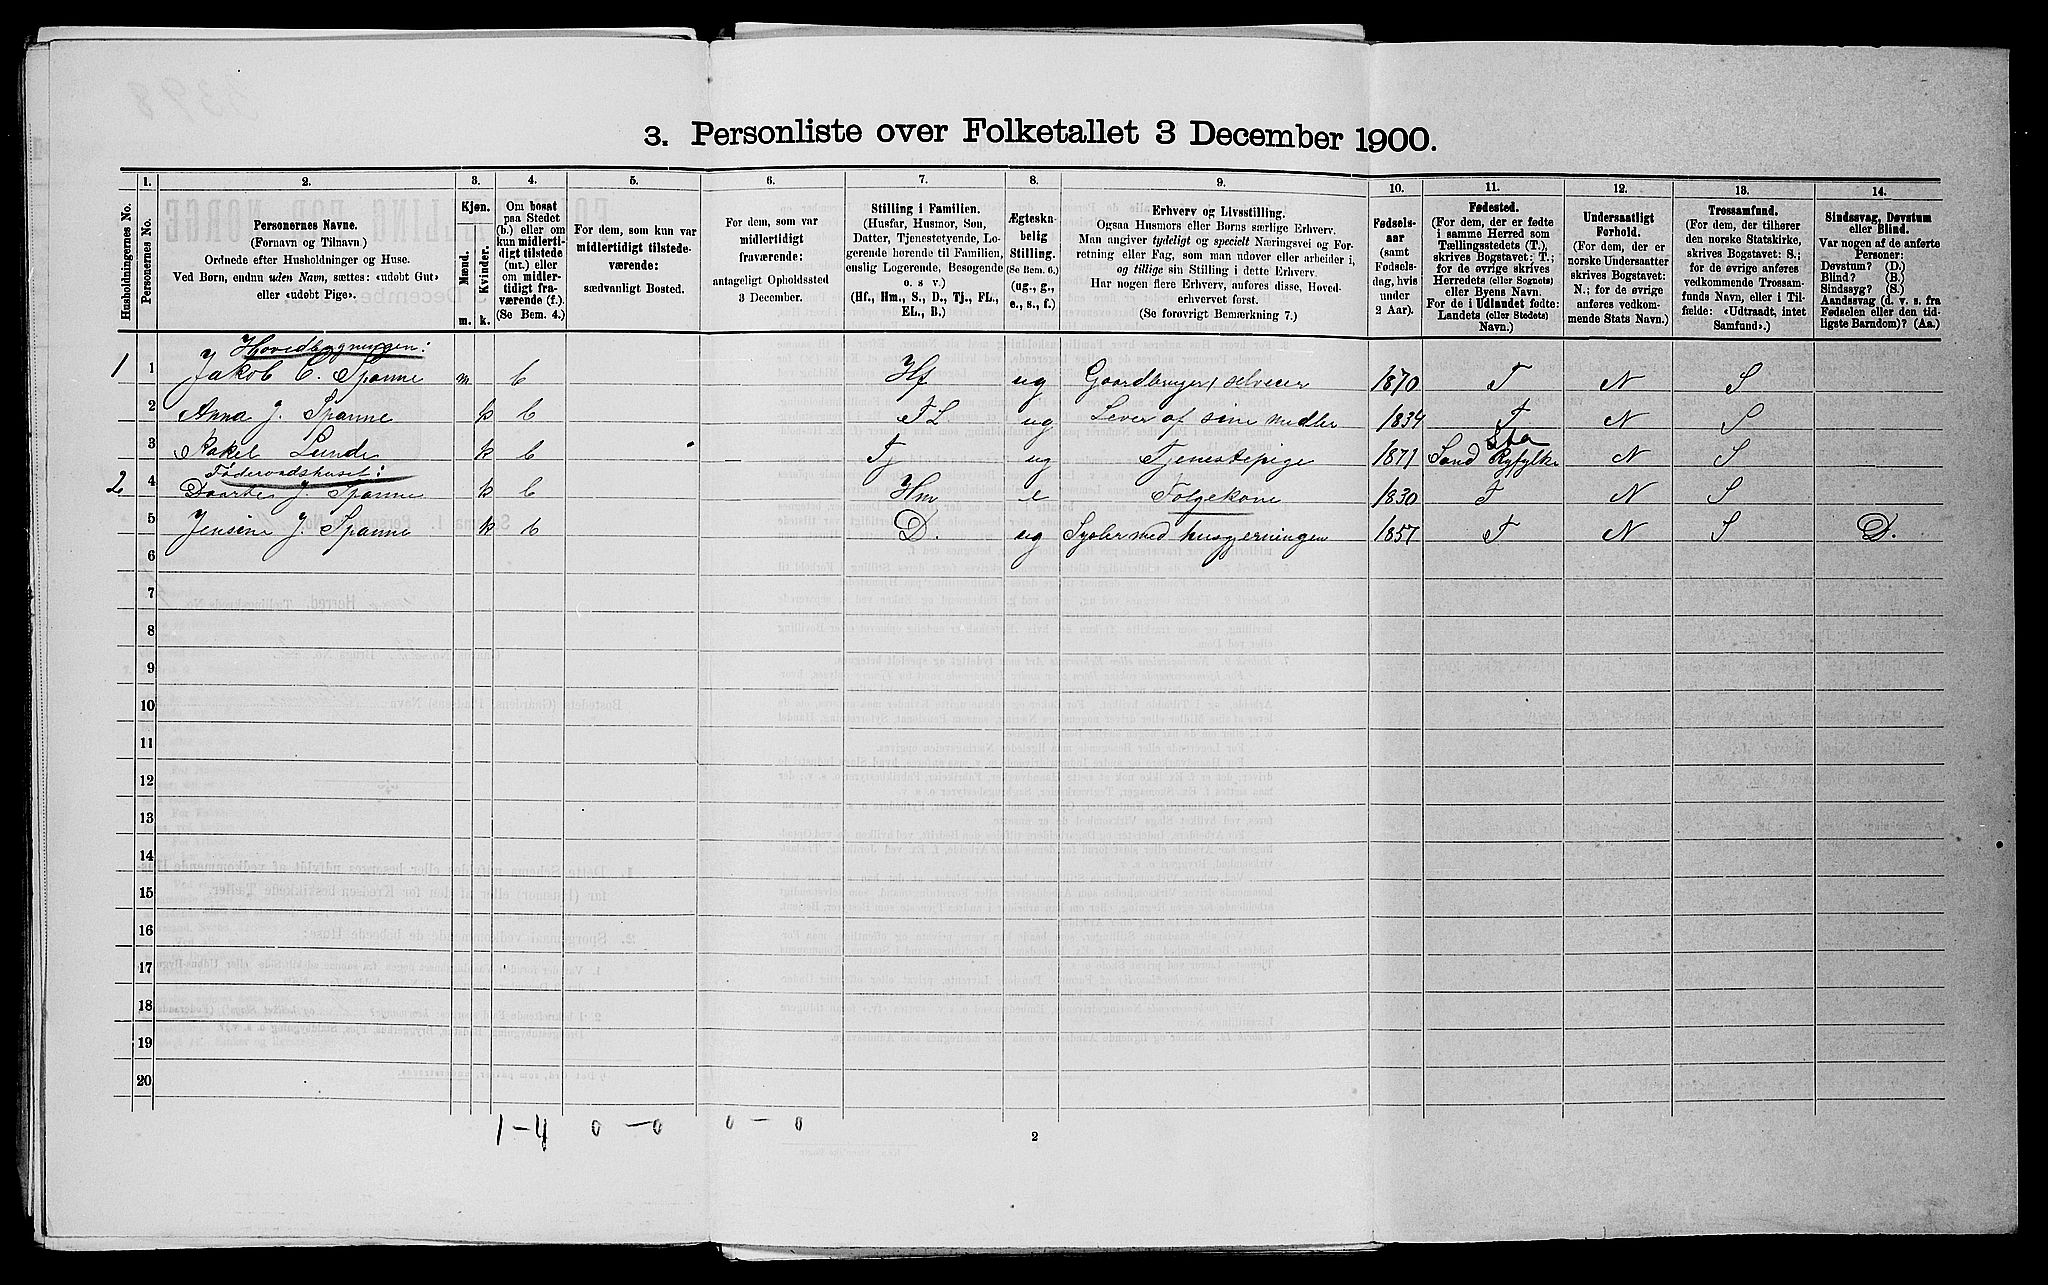 3. Personliste over Folketallet 3 December 1900.
1. 2. 3. 4. 5. 6. 7. 8. 9. 10. 11. 12. 13. 14.
Husholdningernes No.
Personernes No.
Personernes Navne.
(Fornavn og Tilnavn.)
Ordnede efter Husholdninger og Huse.
Ved Børn, endnu uden Navn, sættes: «udøbt Gut»
eller «udøbt Pige».
Kjøn.
Mænd.
Kvinder.
m. k.
Om bosat
paa Stedet
(b.) eller om
kun midlerti-
digt tilstede
(mt.) eller
om midler-
tidigt fra-
værende (f.).
(Se Bem. 4.)
For dem, som kun var
midlertidigt tilstede-
værende:
sædvanligt Bosted.
For dem, som var
midlertidigt
fraværende:
antageligt Opholdssted
3 December.
Stilling i Familien.
(Husfar, Husmor, Søn,
Datter, Tjenestetyende, Lo-
gerende hørende til Familien,
enslig Logerende, Besøgende
o. s. v.)
(Hf., Hm., S., D., Tj., FL.,
EL., B.)
Ægteska-
belig
Stilling.
(Se Bem. 6.)
(ug., g.,
e., s., f.)
Erhverv og Livsstilling.
Ogsaa Husmors eller Børns særlige Erhverv.
Man angiver tydeligt og specielt Næringsvei og For-
retning eller Fag, som man udøver eller arbeider i,
og tillige sin Stilling i dette Erhverv.
Har nogen flere Erhverv, anføres disse, Hoved-
erhvervet først.
(Se forøvrigt Bemærkning 7.)
Fødsels-
aar
(samt
Fødsels-
dag, hvis
under
2 Aar).
Fødested.
(For dem, der er fødte
i samme Herred som
Tællingsstedets (T.),
skrives Bogstavet: T.;
for de øvrige skrives
Herredets (eller Sognets)
eller Byens Navn.
For de i Udlandet fødte:
Landets (eller Stedets)
Navn.)
Undersaatligt
Forhold.
(For norske Undersaatter
skrives Bogstavet:
N.; for de øvrige
anføres vedkom-
mende Stats Navn.)
Trossamfund.
(For dem, der tilhører
den norske Statskirke,
skrives Bogstavet: S.;
for de øvrige anføres
vedkommende Trossam-
funds Navn, eller i Til-
fælde: «Udtraadt, intet
Samfund».)
Sindssvag, Døvstum
eller Blind.
Var nogen af de anførte
Personer:
Døvstum? (D.)
Blind? (B.)
Sindssyg? (S.)
Aandssvag (d. v. s. fra
Fødselen eller den tid-
ligste Barndom)? (Aa.)
Hovedbygningen:
1 1 Jakob C. Spanne m b Hf ug Gaardbruger, selveier 1870 T N S
2 Anna J. Spanne k b FL ug Lever af sine midler 1834 T N S
3 Rakel Lunde k b — Tj ug Tjenestepige 1871 Sand Ryfylke Sta N S
Føderaadshuset:
2 4 Daarte J. Spanne k b Hm e Folgekone 1830 T N S
5 Jensine J. Spanne k b D. ug Sysler med husgjerningen 1857 T N S D.
6
7
8
9
10
11
12
13
14
15
16
17
18
19
20
1-4 0-0 0-0
2